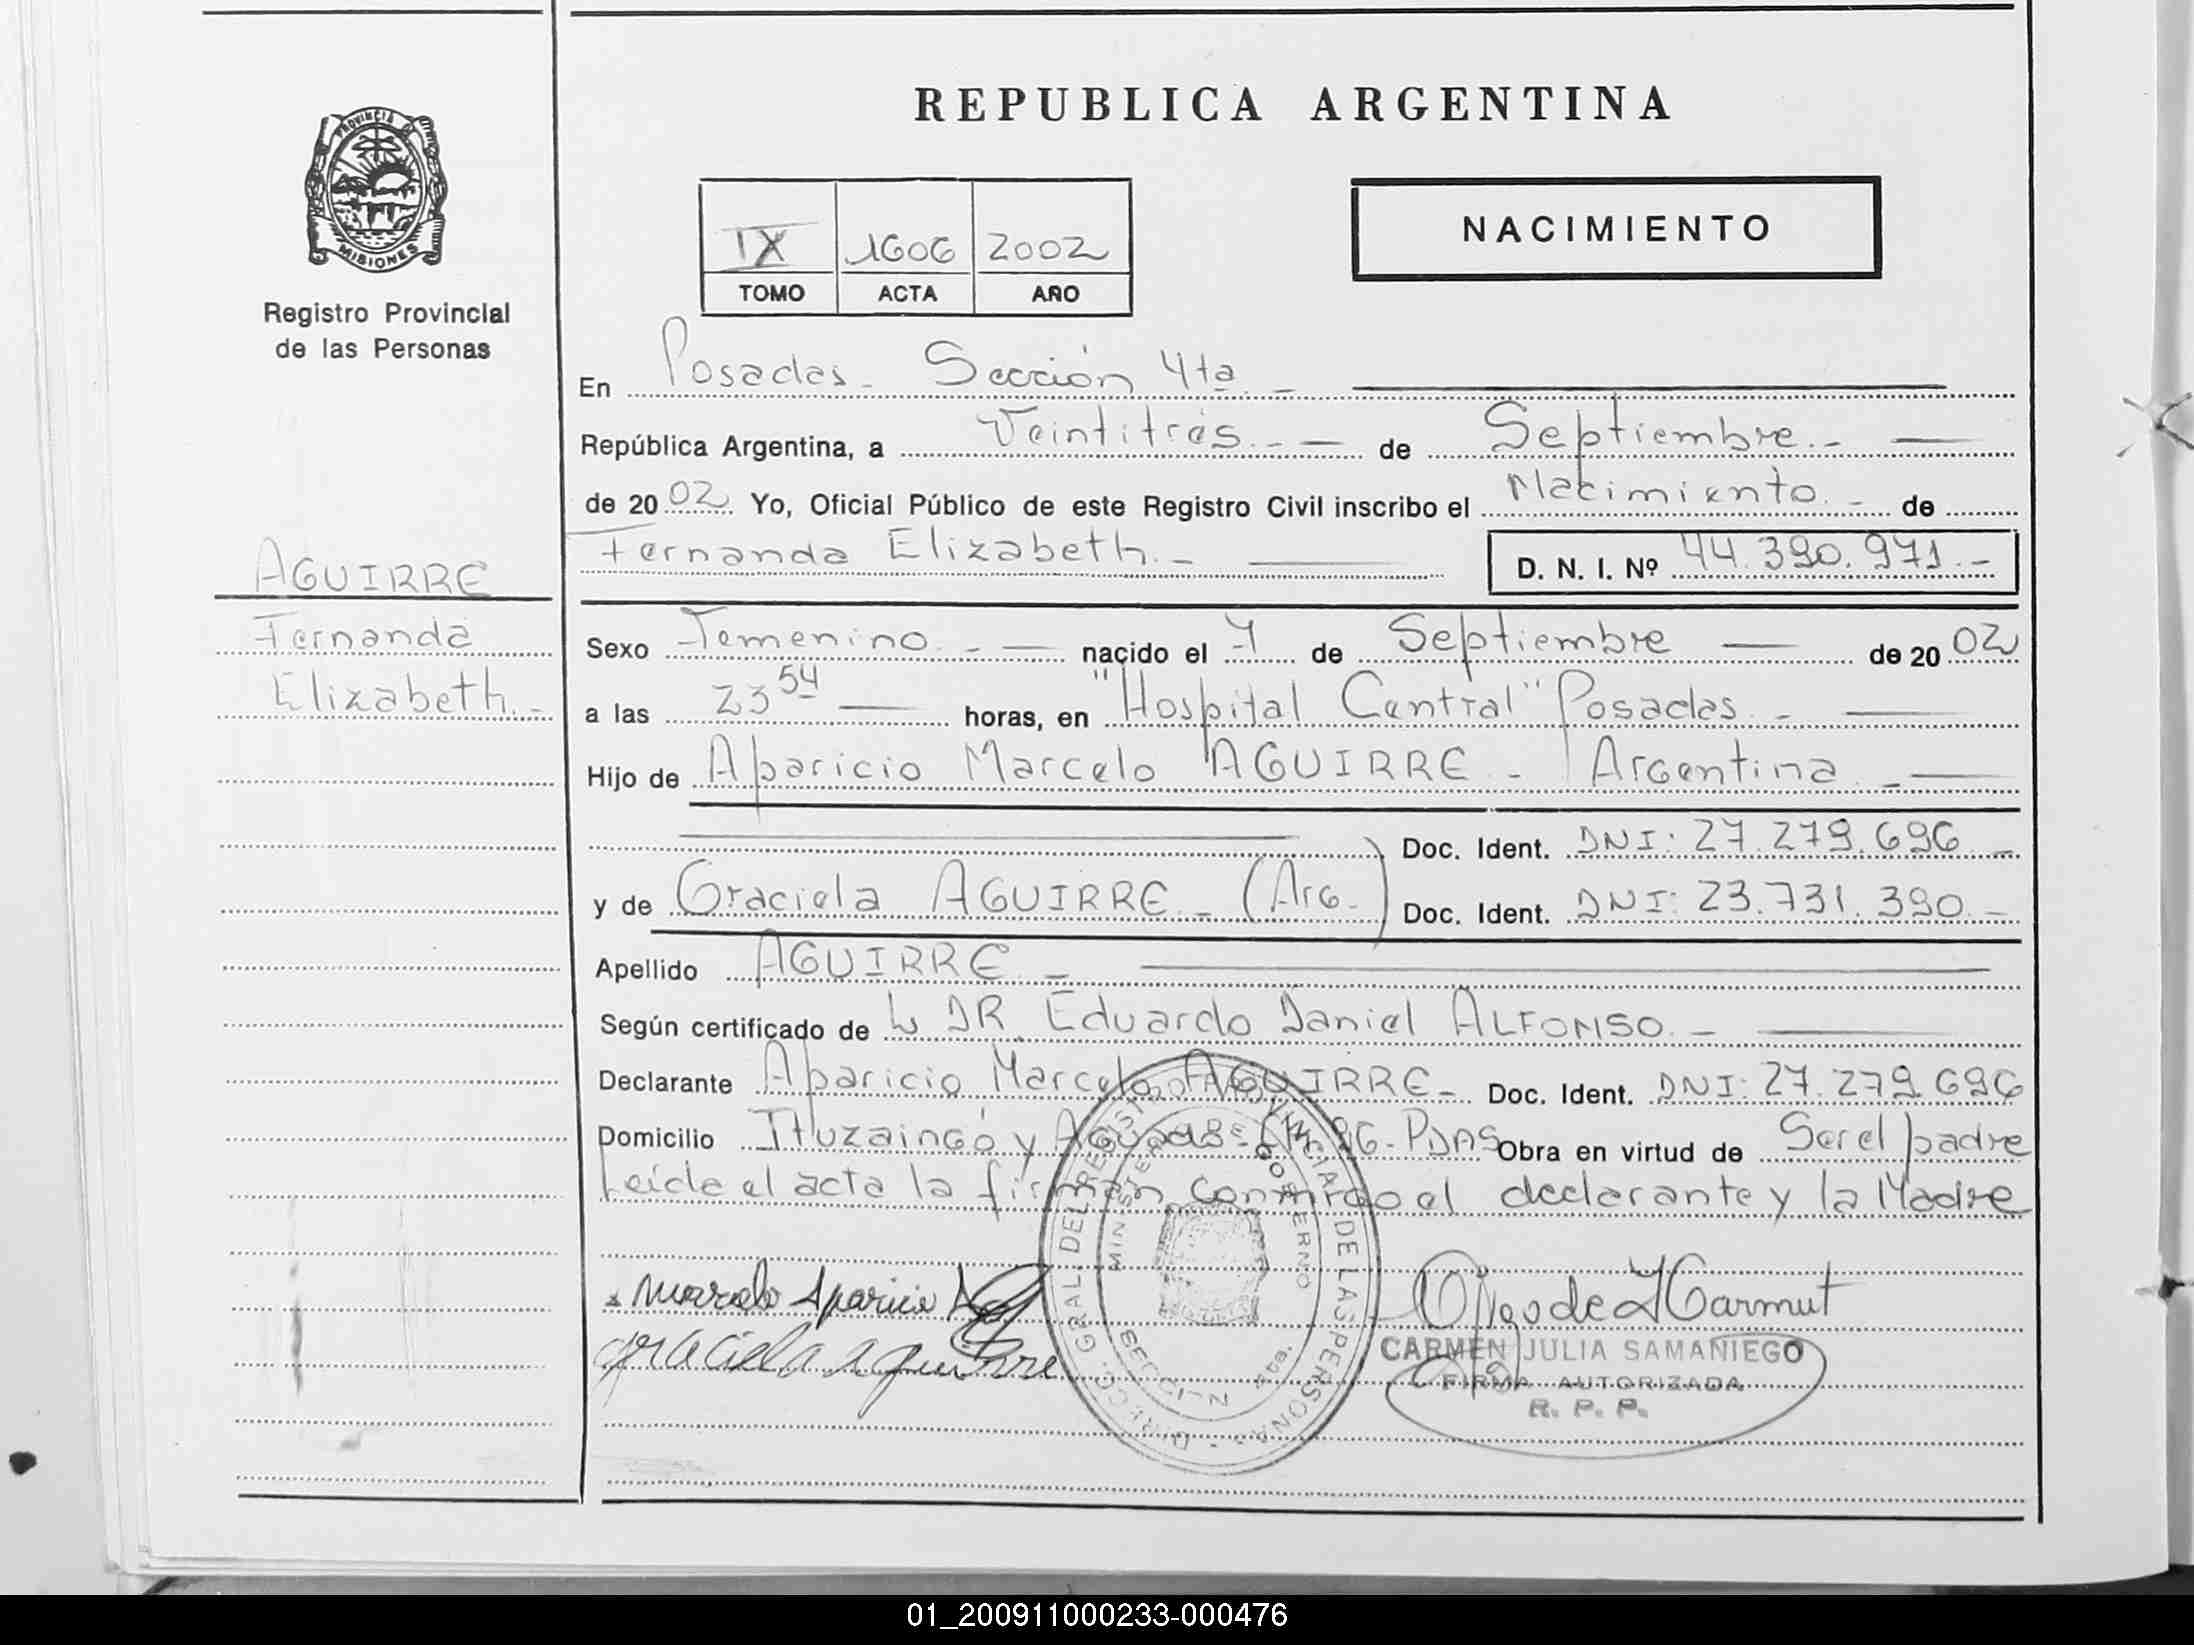 REPUBLICA ARGENTINA
PROVINCIA DE
MISIONES
Registro Provincial
de las Personas
IX 1606 2002
TOMO ACTA AÑO
NACIMIENTO
En Posadas - Sección 4ta. -
República Argentina, a Veintitrés. - de Septiembre. -
de 2002 Yo, Oficial Público de este Registro Civil inscribo el Nacimiento. - de
Fernanda Elizabeth. - D. N. I. Nº 44.390.971. -
AGUIRRE
Fernanda
Elizabeth. -
Sexo Femenino. - nacido el 7 de Septiembre de 2002
a las 23 54 horas, en "Hospital Central" Posadas. -
Hijo de Aparicio Marcelo AGUIRRE - Argentina. -
Doc. Ident. DNI: 27.279.696 -
y de Graciela AGUIRRE. - (Arg.) Doc. Ident. DNI: 23.731.390. -
Apellido AGUIRRE. -
Según certificado de DR. Eduardo Daniel ALFONSO. -
Declarante Aparicio Marcelo AGUIRRE - Doc. Ident. DNI: 27.279.696
Domicilio Ituzaingó y 96 - PDAS Obra en virtud de Ser el padre
Leída el acta la firman conmigo el declarante y la Madre
Marcelo Aparicio
graciela aguirre
DIRECC. GRAL. DEL REGISTRO PROVINCIAL DE LAS PERSONAS
MINISTERIO DE GOBIERNO
SECCION 4ta.
CARMEN JULIA SAMANIEGO
FIRMA AUTORIZADA
R. P. P.
01_200911000233-000476